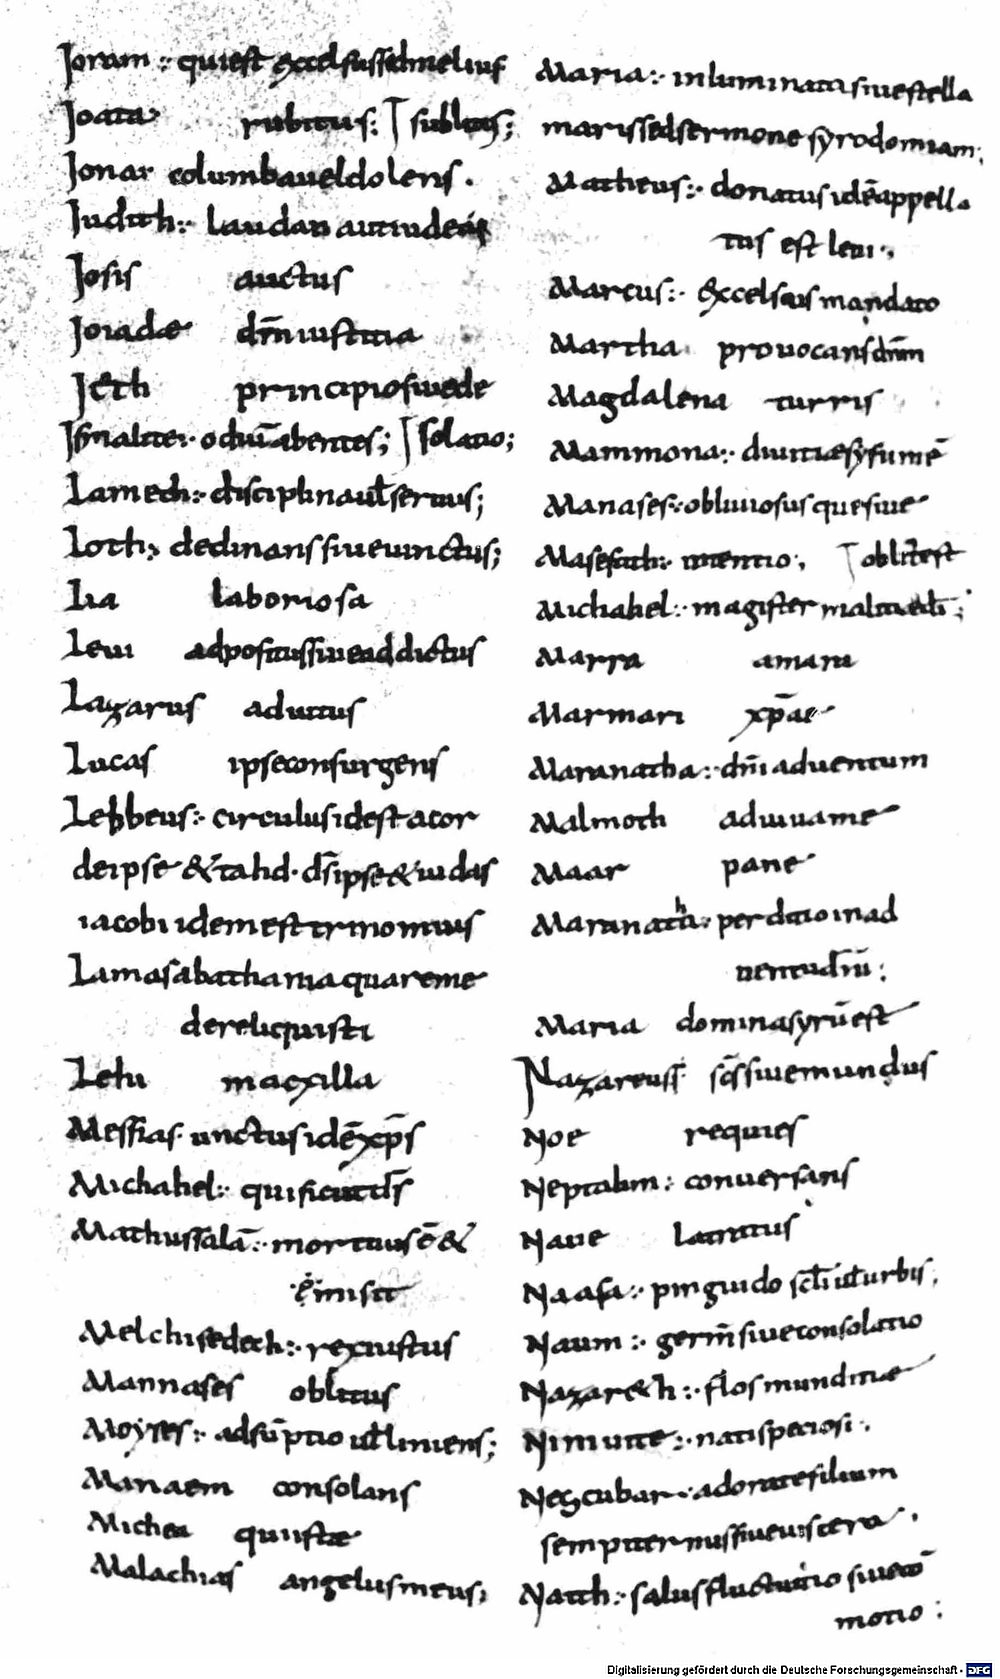 Joram :· qui est excelsus sed melius
Joata rubitus: sublatus;
Jonas columbaveldolens.
Judith:· laudans aut iudeas
Josis auctus
Joiadae dn̄m iustitia
Jeth principio sive de
Ismalite:· oduı̄ abentes; solatio;
Lamech:· disciplina ul̄ servus;
Loth:· declinans sive vinctus;
Lia laboriosa
Levi adpositus sive addictus
Lazarus adiutus
Lucas ipse consurgens
Lebbeus:· circulus id est a cor
de ipse & tahd· dr̄ ipse & iudas
iacobi idem est trinomius
Lamasabathania quare me
dereliquisti
Lehi maxilla
Messias· unctus idē xp̄s
Michahel:· qui sicut dr̄s
Mathussalā:· mortuus ē &
emisit
Melchisedech:· rex iustus
Mannases oblitus
Moyses:· adsūptio ul̄ liniens;
Manaem consolans
Michea qui iste
Malachias angelus meus;
Maria:· inluminata sive stella
maris sed sermone syro dominam;
Matheus:· donatus idē appella
tus est levi·,
Marcus:· excelsus mandato
Martha provocans dn̄m
Magdalena turris
Mammona:· divitiae syr sumē
Manases:· obliviosus que sive
Masefath:· intentio; oblit̄ est
Michahel:· magister
Marra amara
Marmari xp̄ae
Maranatha:· dn̄i adventum
Malmoth adiuva me
Maar pane
Maranatha:· perditio in ad
ventu dn̄i:
Maria domina syrū est
Nazareuss sc̄s sive mundus
Noe requies
Neptalim: conversans
Nave latratus
Naasa:· pinguido sc̄ti ul̄ urbis,
Naum:· germ̄ sive consolatio
Nazar&h:· flos munditiae
Nimvite:· nati speciosi·,
Nezcubar:· adorate filium
sempiternus sive viscera·,
Natth:· salus fluctuatio sive cō
motio:
Digitalisierung gefördert durch die Deutsche Forschungsgemeinschaft - DFG